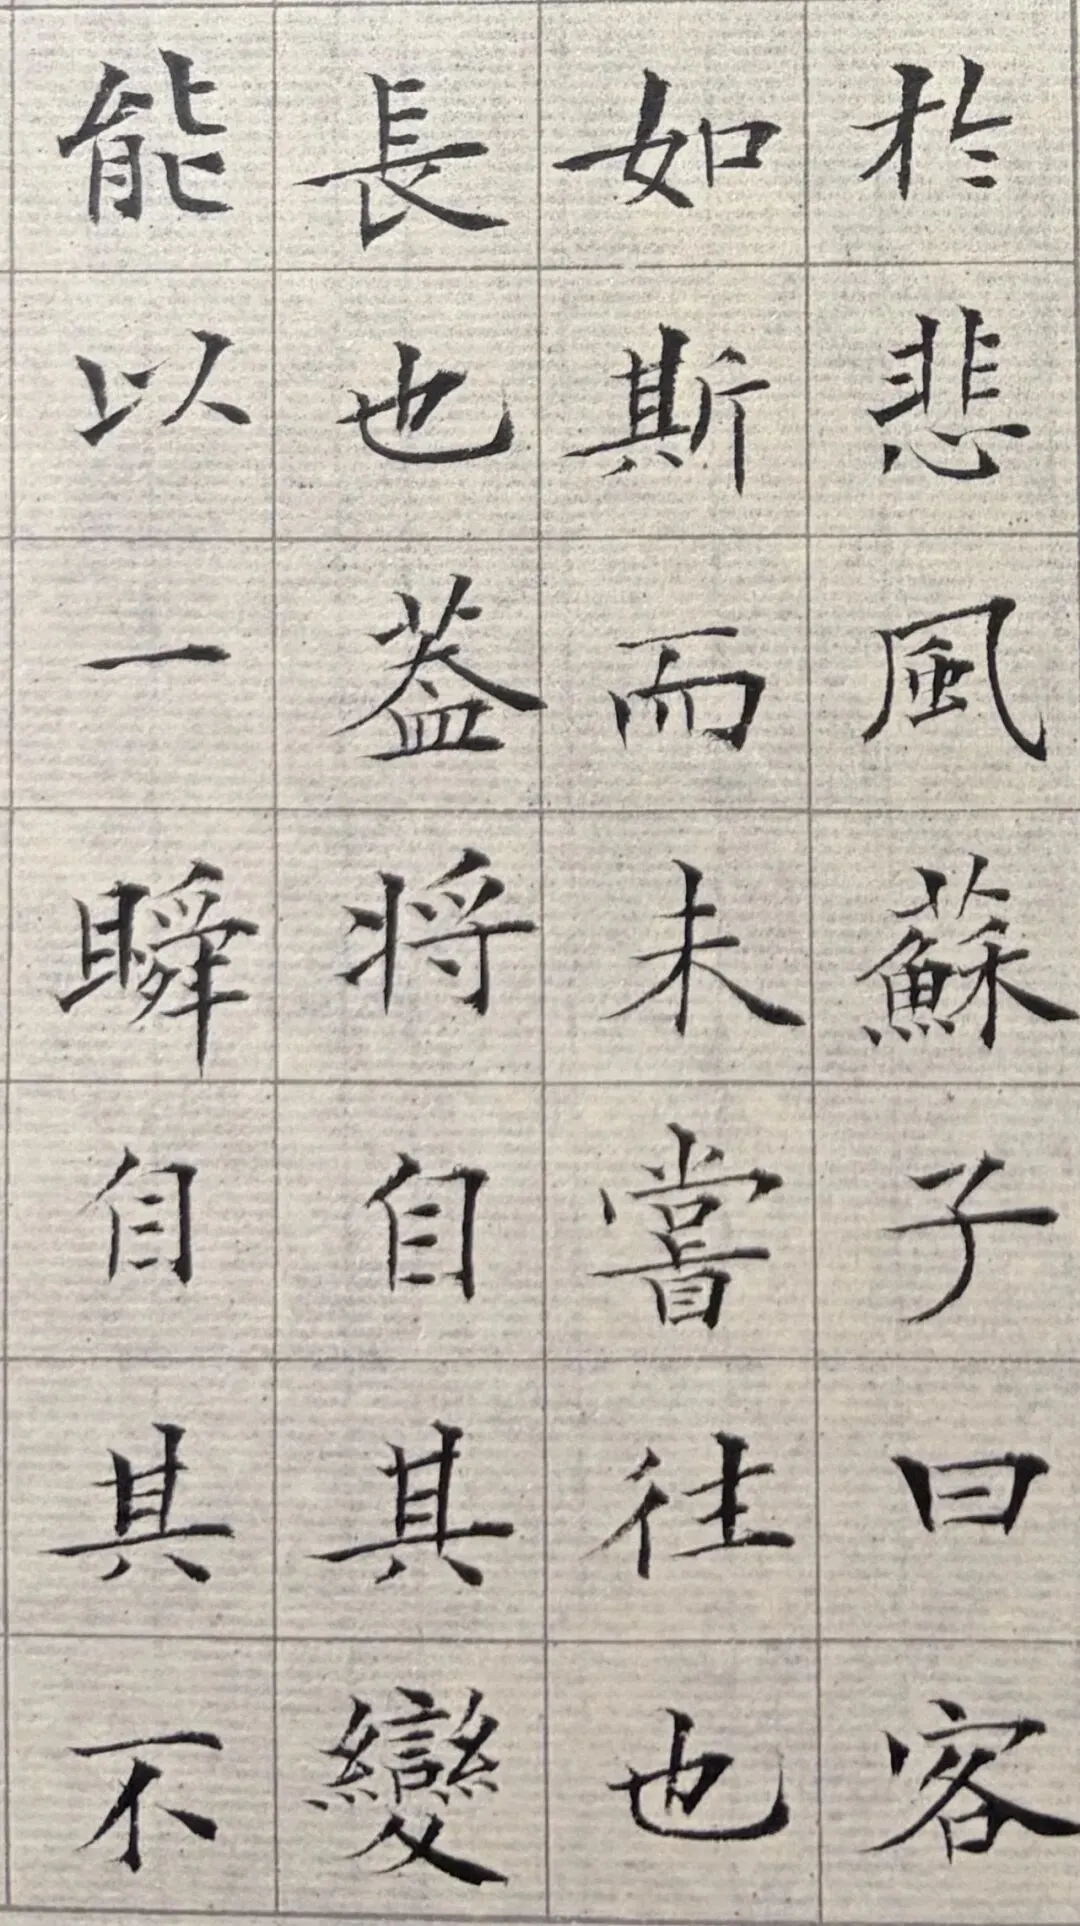 於悲風蘇子曰客
如斯而未嘗往也
長也葢將自其變
能以一瞬自其不